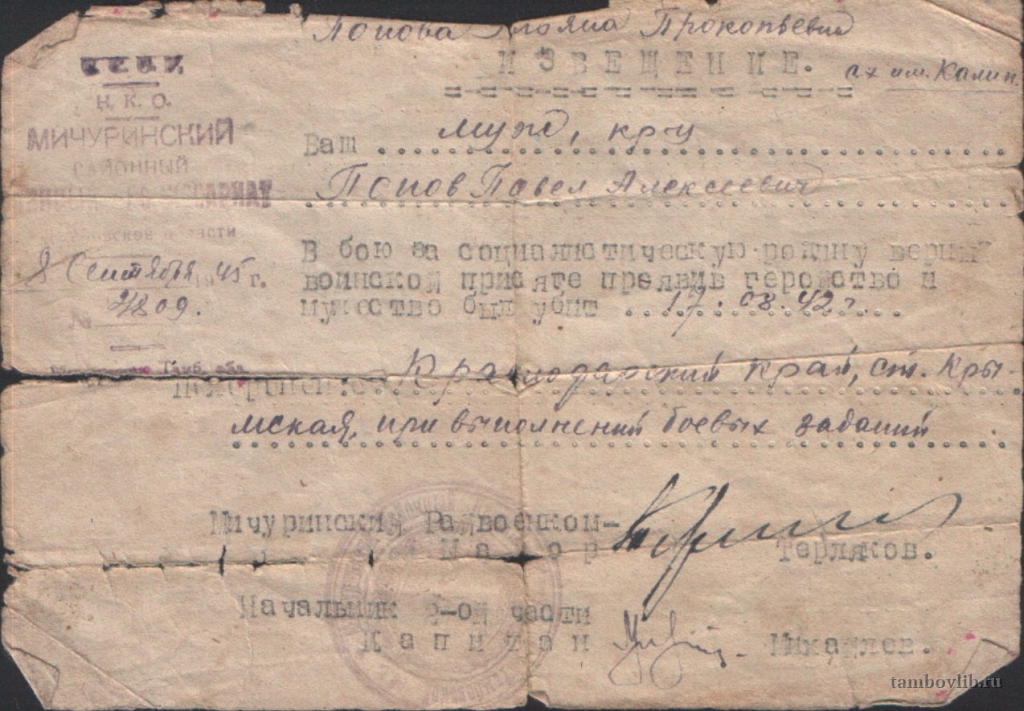 Попова Прокопьевна
ИЗВЕЩЕНИЕ.
с/х им. Калин
Н. К. О.
МИЧУРИНСКИЙ
РАЙОННЫЙ
Ваш муж, кр-ц
Попов Павел Алексеевич
8 Сентября 1945 г.
№ 4809.
В бою за социалистическую родину верный
воинской присяге проявив геройство и
мужество был убит 17.08.42 г.
Тамб. обл.
Похоронен: Краснодарский край, ст. Кры-
мская, при выполнений боевых заданий
Мичуринский Райвоенком-
Майор Терляков.
Начальник 3-ой части
Капитан Михайлев.
tambovlib.ru